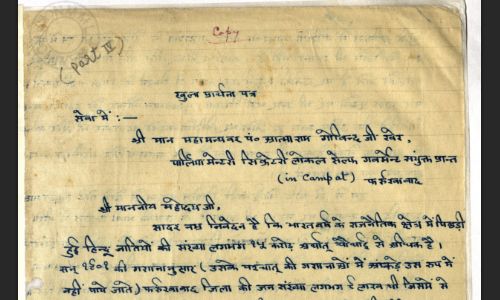 Copy
(part IV)
खुला प्रार्थना पत्र
सेवा में :—
श्री मान महामान्यवर पं० आत्माराम गोविन्द जी खेर,
पार्लियामेन्टरी सिक्रेटरी लोकल सेल्फ गवर्मेन्ट संयुक्त प्रान्त
(in Camp at) फर्रुखाबाद
श्री माननीय महोदय जी,
सादर नम्र निवेदन है कि भारतवर्ष के राजनैतिक क्षेत्र में पिछड़ी
हुई हिन्दू जातियों की संख्या लगभग १५ करोड़ अर्थात् चौथाई से अधिक है।
सन् १९०१ की गणनानुसार (उसके पश्चात् की गणनाओं में आंकड़े उस रूप में
नहीं पाये जाते) फर्रुखाबाद जिला की जन संख्या लगभग ९ लाख थी जिसमें से